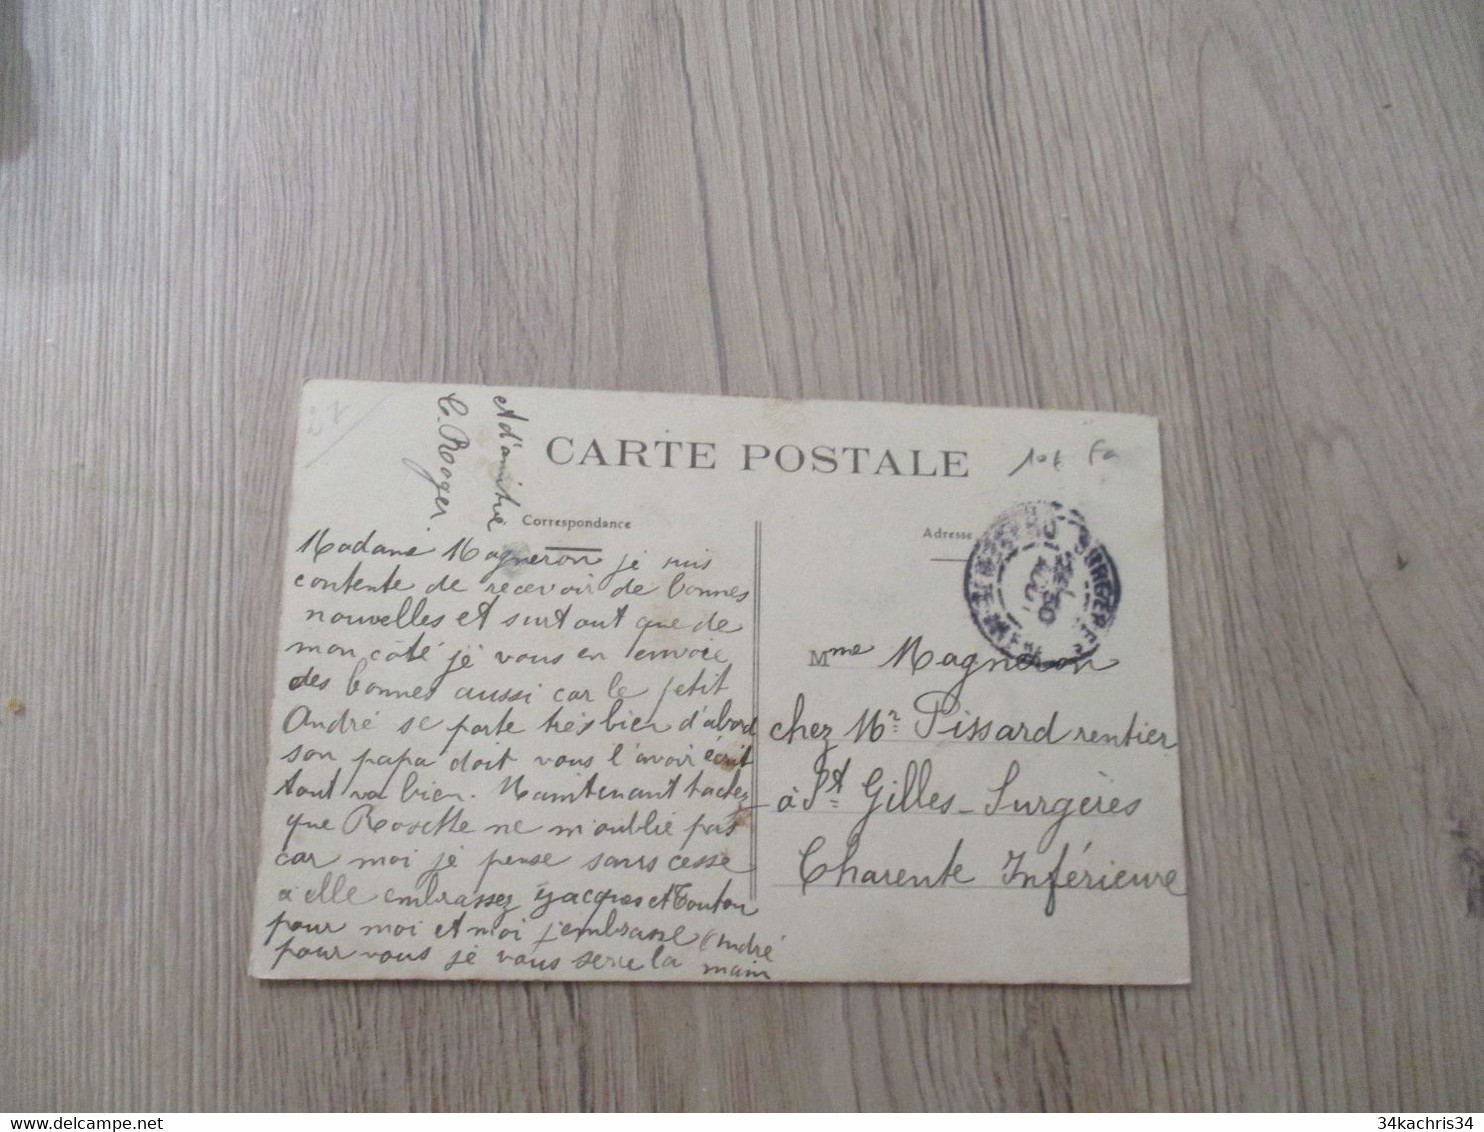 CARTE POSTALE
10f Fa
Correspondance
Adresse
Madame Magneron je suis
contente de recevoir de bonnes
nouvelles et surtout que de
mon côté je vous en envoie
des bonnes aussi car le petit
André se porte très bien d'abord
son papa doit vous l'avoir écrit
tout va bien. Maintenant tachez
que Rosette ne m'oublie pas
car moi je pense sans cesse
a elle embrassez Jacques et Touton
pour moi et moi j'embrasse André
pour vous je vous serre la main
et d'amitié
C. Roger
Mme Magneron
chez Mr Pissard rentier
à St Gilles-Surgères
Charente Inférieure
34kachris34